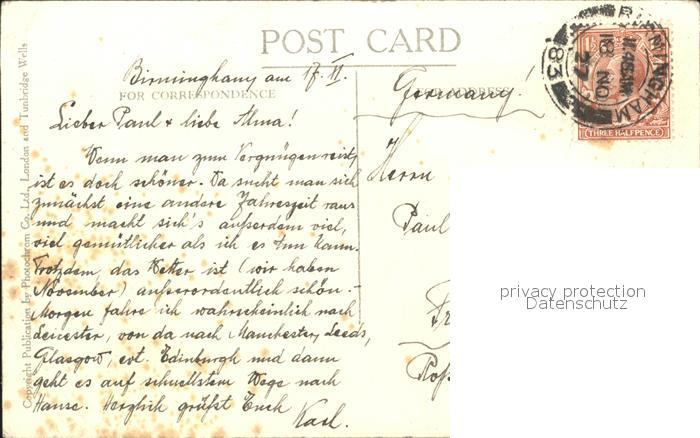 POST CARD
FOR CORRESPONDENCE
Birmingham am 17. 11.
Lieber Paul & liebe Alma!
Wenn man zum Vergnügen reist,
ist es doch schöner. Da sucht man sich
zunächst eine andere Jahreszeit raus
und macht sich's außerdem viel,
viel gemütlicher als ich es tun kann.
Trotzdem, das Wetter ist (wir haben
November) außerordentlich schön.-
Morgen fahre ich wahrscheinlich nach
Leicester, von da nach Manchester, Leeds,
Glasgow, evt. Edinburgh und dann
geht es auf schnellstem Wege nach
Hause. Herzlich grüßt Euch
Karl.
Germany!
Herrn
Paul
BIRMINGHAM
18 NO
27
83
THREE HALFPENCE
privacy protection
Datenschutz
Copyright Publication by Photochrom Co. Ltd., London and Tunbridge Wells